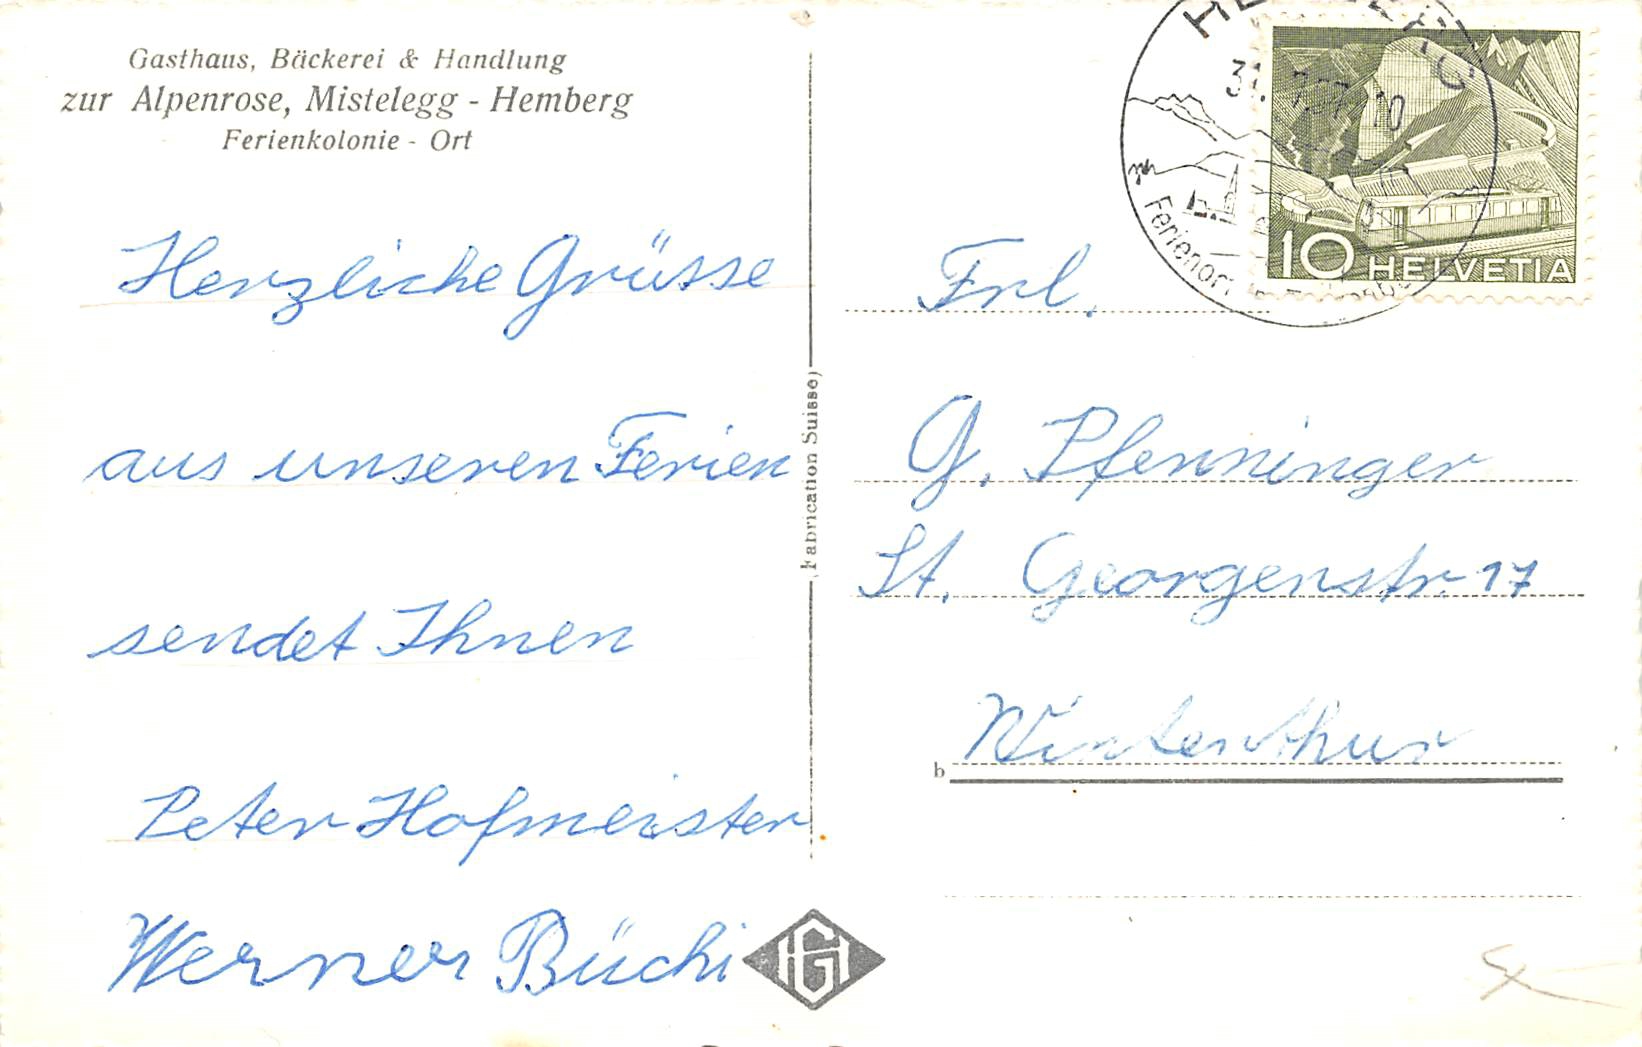 Gasthaus, Bäckerei & Handlung
zur Alpenrose, Mistelegg - Hemberg
Ferienkolonie - Ort
Herzliche Grüsse
aus unseren Ferien
sendet Ihnen
Peter Hofmeister
Werner Büchi
(Fabrication Suisse)
HG
31. 7.57 10
Ferienort
10 HELVETIA
Frl.
G. Pfenninger
St. Georgenstr. 17
Winterthur
b